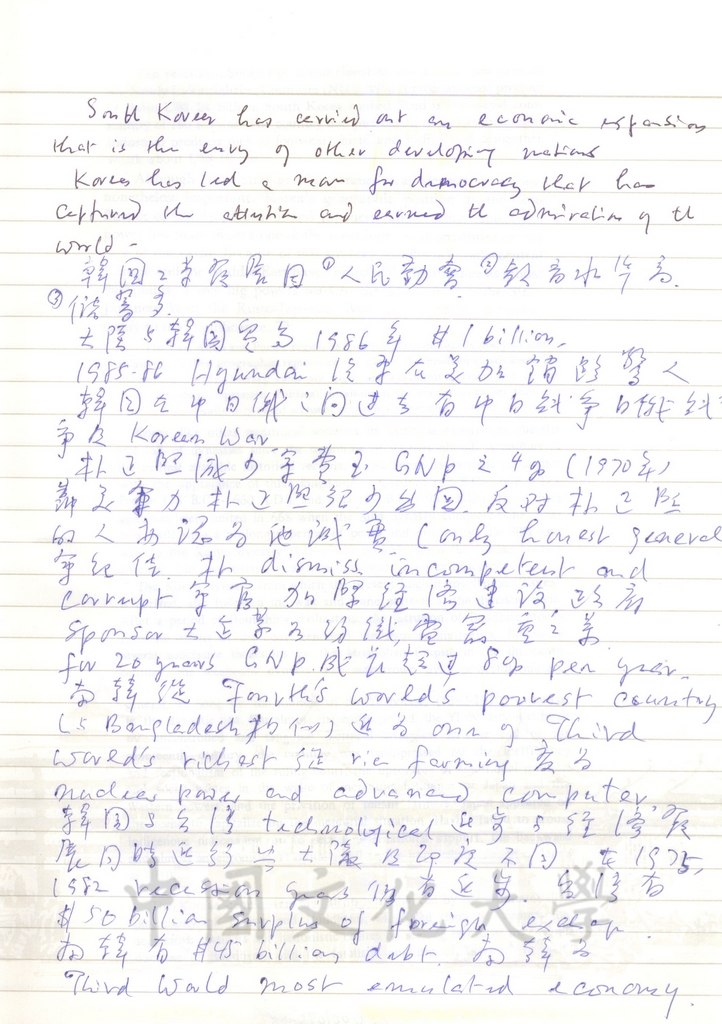 South Korea has carried out an economic expansion
that is the envy of other developing nations
Korea has led a move for democracy that has
captured the attention and earned the admiration of the
world -
韓國之革發原因 ①人民勤奮 ②教育水準高.
③儲蓄多.
大陸与韓國貿易 1986年 $1 billion.
1985-86 Hyundai 汽車在美加銷路驚人
韓國在中日俄之间過去有中日戰爭日俄戰
爭及 Korean War
朴正熙減少軍費至 GNP 之 4% (1970年)
朴正熙 反对朴正熙
的人亦認为他誠實 (only honest general
軍紀佳. 朴 dismiss incompetent and
corrupt 軍官 加緊經濟建設 政府
sponsor 大企業 鋼鐵, 電器 重工業
for 20 years GNP 成長超過 8% per year.
南韓從 Fourth's world's poorest country
(与 Bangladesh 相似) 進为 one of Third
world's richest 從 rice farming 变为
nuclear power and advanced computer
韓国与台灣 technological 進步与經濟發
展同時進行 与大陸 不同 在 1975,
1982 recession years 仍有進步. 台灣有
$50 billion surplus of foreign exchange.
南韓有 $45 billion debt. 南韓为
Third World most emulated economy.
中國文化大學